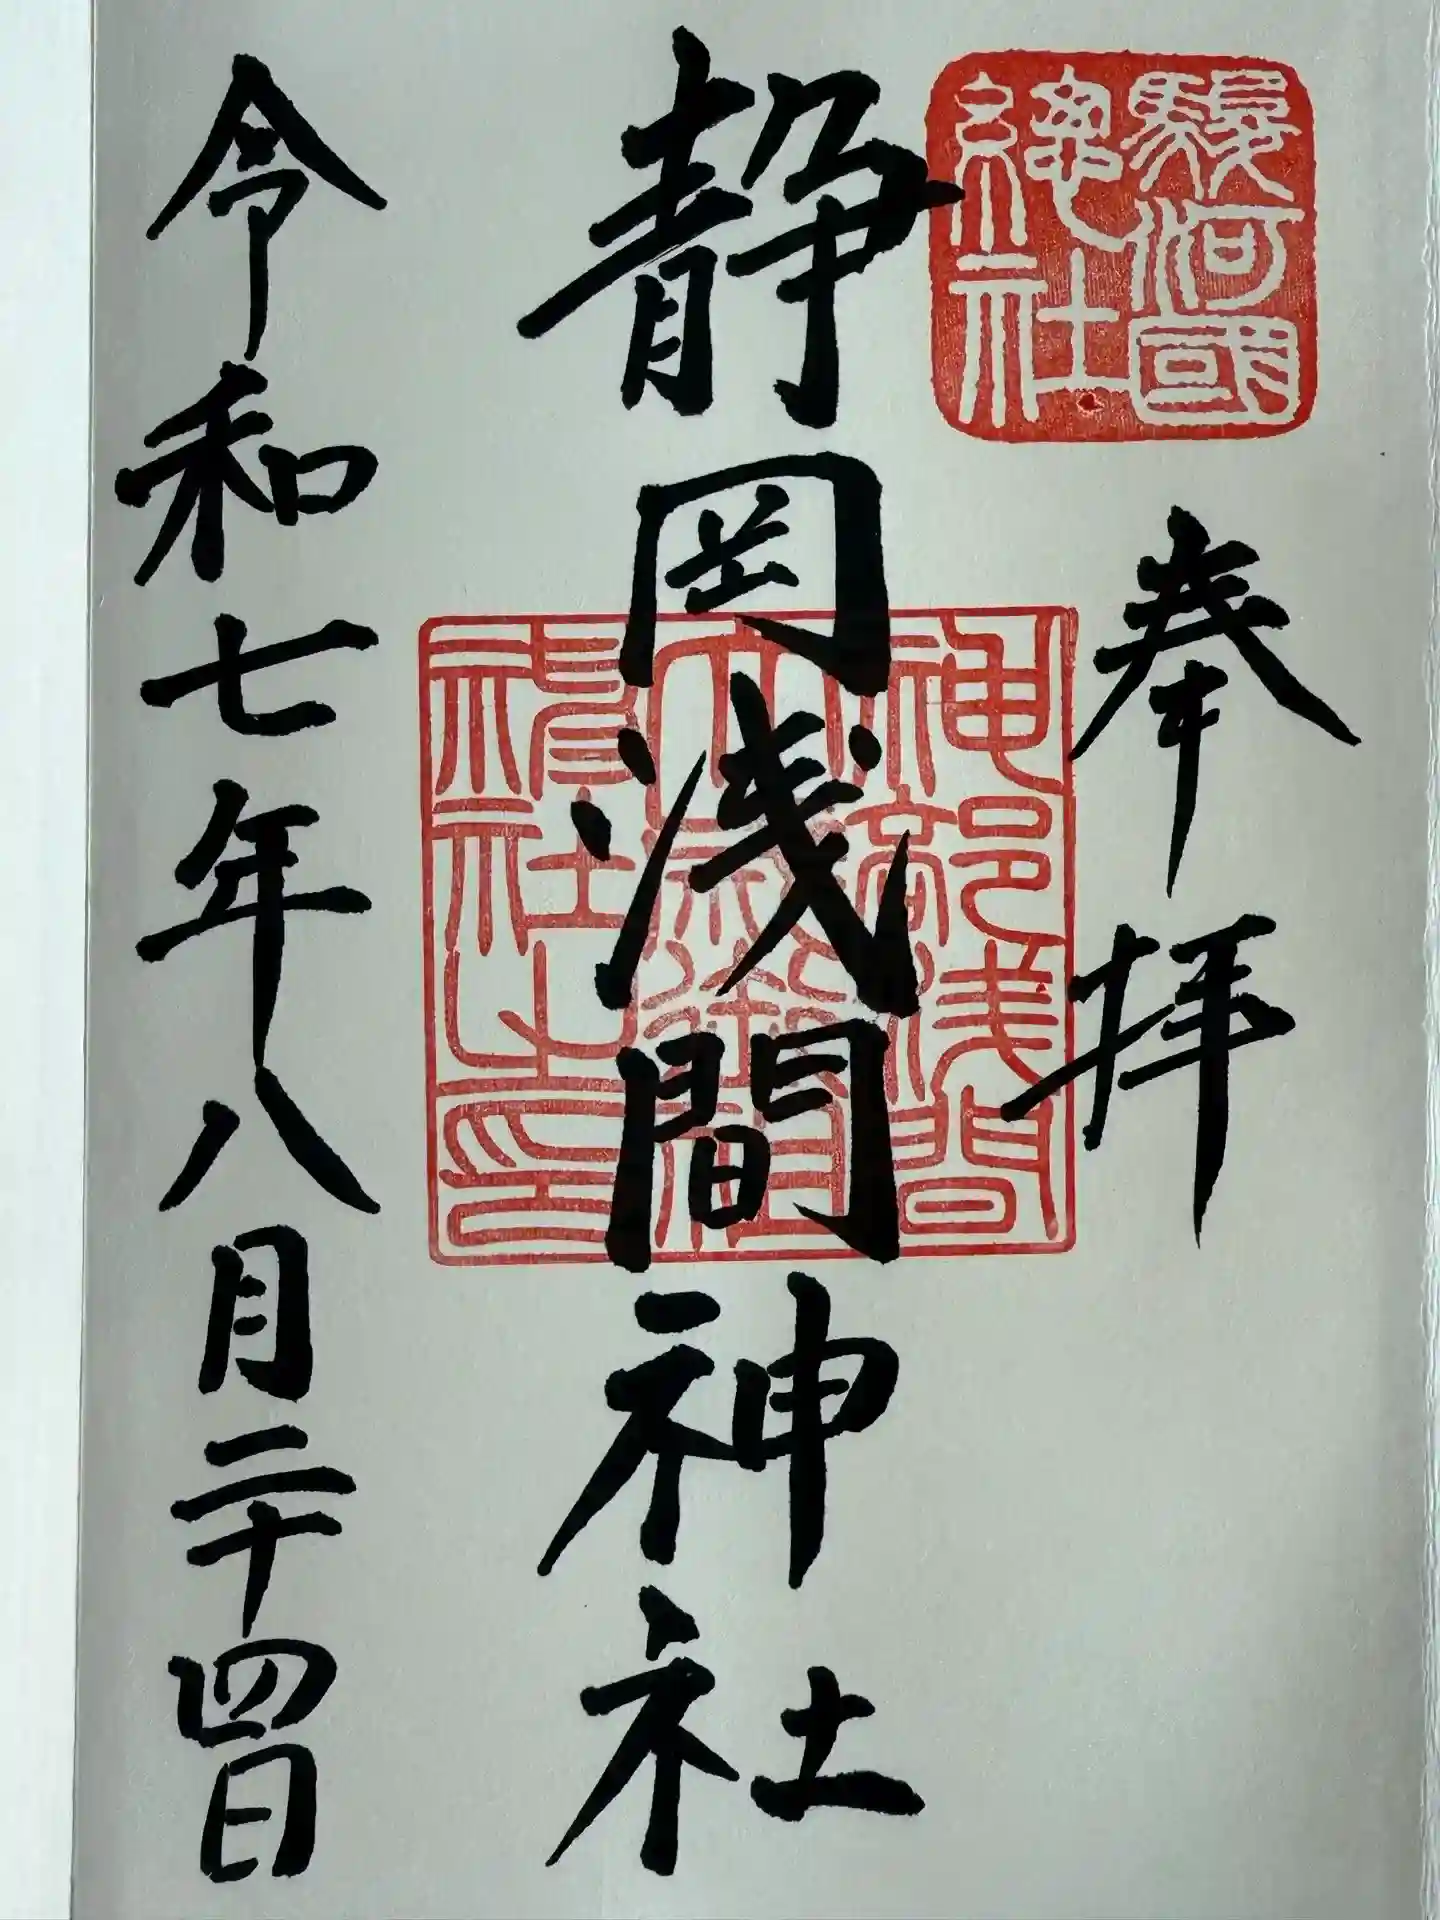 駿河國
總社
奉拝
静岡浅間神社
神部浅間
大歳御祖
神社之印
令和七年八月二十四日